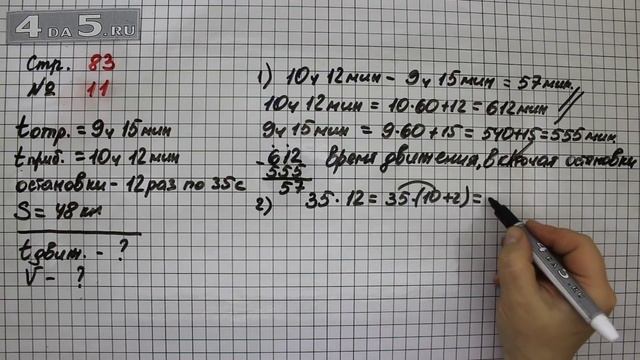 4DA5.RU
Стр. 83
№ 11
tотпр. = 9ч 15 мин
tприб. = 10ч 12 мин
остановки - 12 раз по 35 с
S = 48 км
tдвит. - ?
V - ?
1) 10ч 12 мин - 9ч 15 мин = 57 мин.
10ч 12 мин = 10·60+12 = 612 мин //
9ч 15 мин = 9·60+15 = 540+15 = 555 мин.
- 612
555
57
время движения, включая остановки
2) 35·12 = 35·(10+2) =